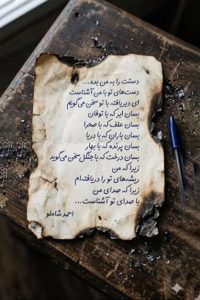 دستت را به من بده...
دست‌های تو با من آشناست
ای دیریافته با تو سخن می‌گویم
بسان ابر که با توفان
بسان علف که با صحرا
بسان باران که با دریا
بسان پرنده که با بهار
بسان درخت که با جنگل سخن می‌گوید
زیرا که من
ریشه‌های تو را دریافته‌ام
زیرا که صدای من
با صدای تو آشناست...
احمد شاملو